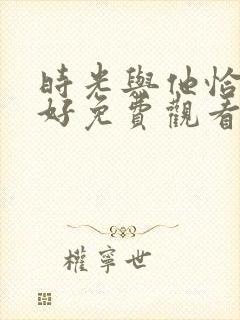 時光與他恰
好免費觀看
權寧世